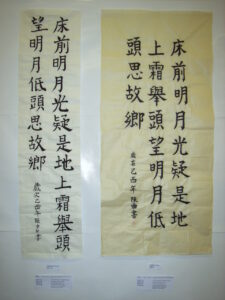 床前明月光疑是地上霜舉頭
望明月低頭思故鄉
乙酉年
書
床前明月光疑是地
上霜舉頭望明月低
頭思故鄉
乙酉年 陳
書